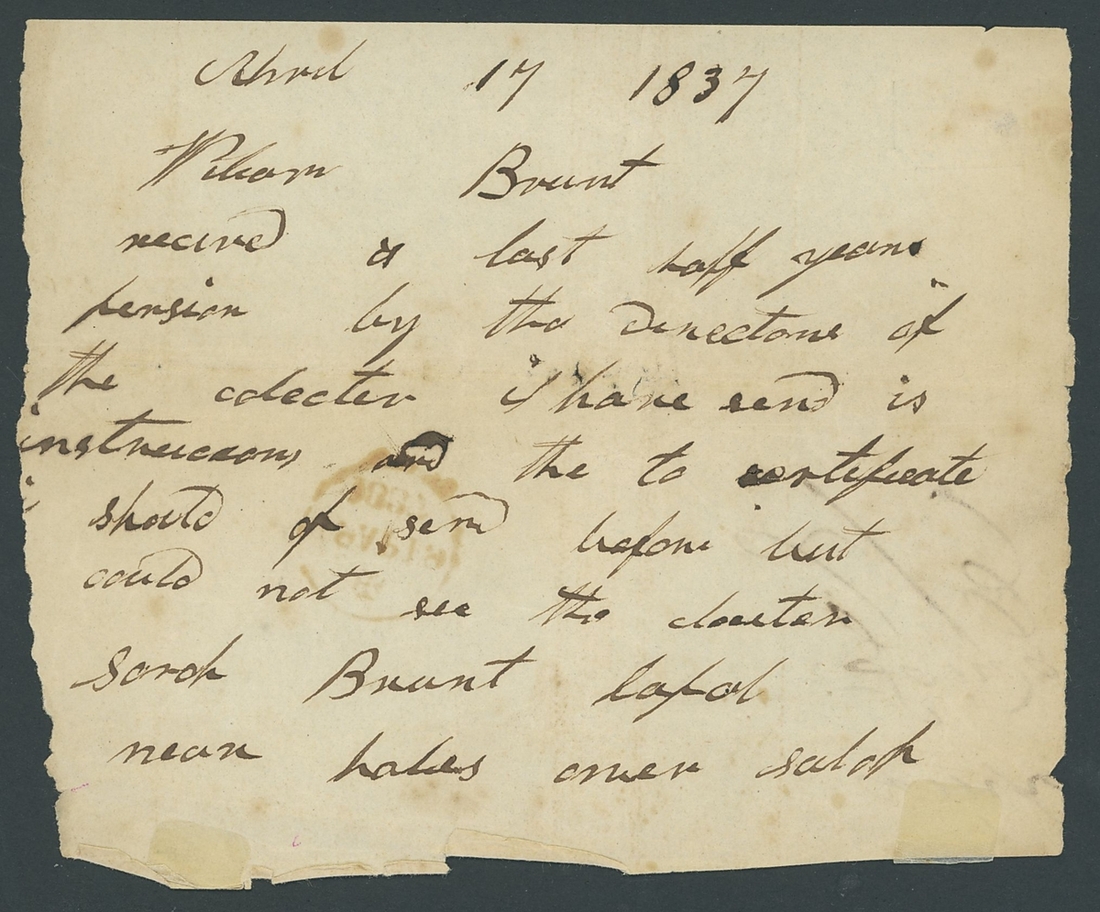 Aprel 17 1837
Wiliam Brunt
recived a last haff years
pension by the directons of
the colecter i have send is
instruccons and the to certificate
i should of send before but
could not see the docter
Sarah Brunt lapal
near hales oner salop